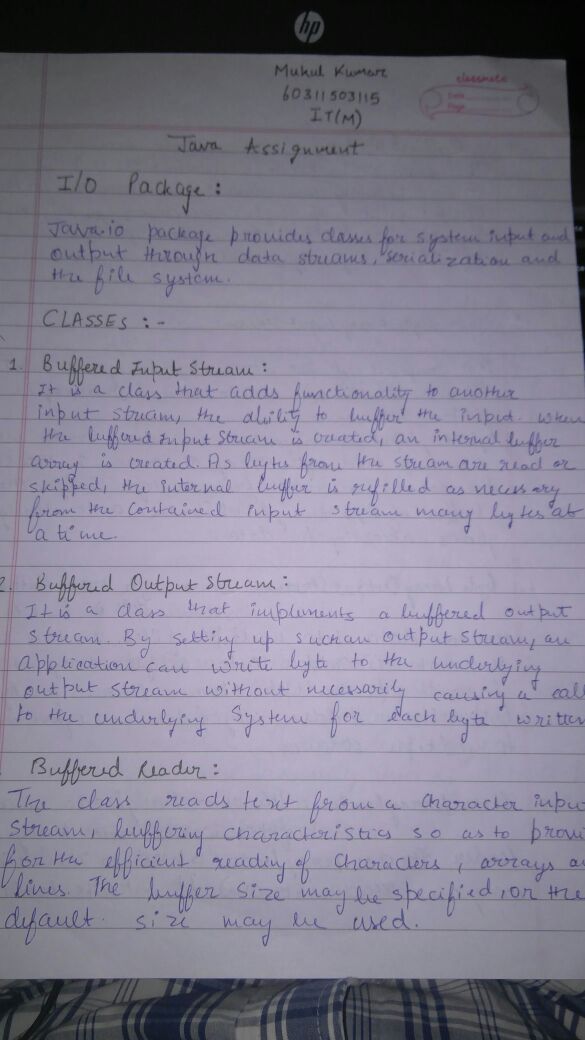 hp
Mukul Kumar
60311503115
IT(M)
classmate
Date
Page
Java Assignment
I/O Package :
Java.io package provides classes for system input and
output through data streams, serialization and
the file system.
CLASSES : -
1. Buffered Input Stream :
It is a class that adds functionality to another
input stream, the ability to buffer the input. when
the buffered Input Stream is created, an internal buffer
array is created. As bytes from the stream are read or
skipped, the internal buffer is refilled as necessary
from the contained input stream many bytes at
a time.
2. Buffered Output Stream :
It is a class that implements a buffered output
stream. By setting up such an output stream, an
application can write byte to the underlying
output stream without necessarily causing a call
to the underlying System for each byte written
Buffered Reader :
The class reads text from a character inpu
stream, buffering characteristics so as to provi
for the efficient reading of characters, arrays a
lines. The buffer size may be specified, or the
default size may be used.